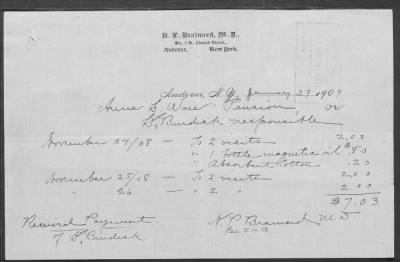 D. P. Brainard, M. D.,
No. 2 N. Church Street,
Andover, New York.
Andover, N. Y., January 29 1909
Anna L. Ware Pension or
Burdick responsible
November 24/08 — To 2 visits 2.00
" 1 bottle magnetic oil .83
" Absorbent cotton .20
November 25/08 — To 2 visits 2.00
" 26 — " 2 " 2.00
$7.03
Received Payment N. P. Brainard M. D.
of Burdick Per